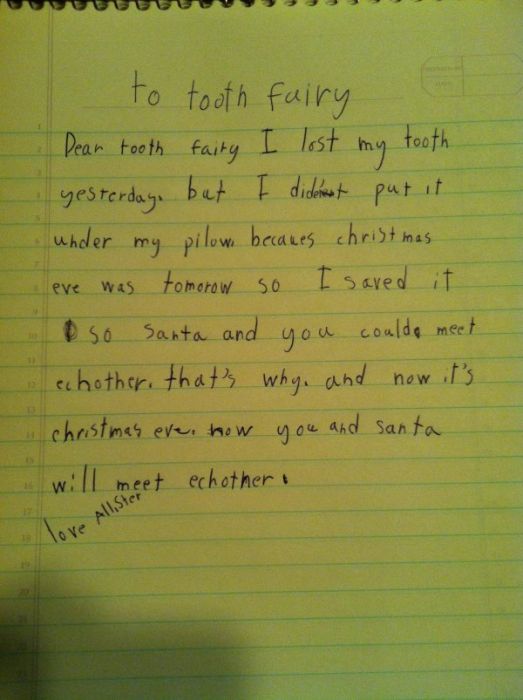 to tooth fairy
Dear tooth fairy I lost my tooth
yesterday. but I did't put it
under my pilow. becaues christmas
eve was tomorow so I saved it
so Santa and you could meet
echother. that's why. and now it's
christmas eve. now you and santa
will meet echother.
love Allister